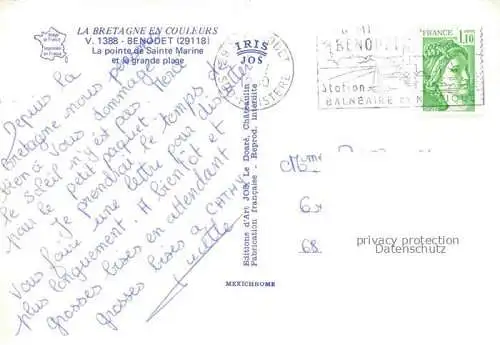 LA BRETAGNE EN COULEURS
V. 1388 - BENODET (29118)
La pointe de Sainte Marine
et la grande plage
IRIS
JOS
BENODET
Station
BALNÉAIRE
FINISTERE
FRANCE
1,10
Depuis la
Bretagne nous pensons
bien à vous dommage
le soleil n'y est pas. Merci
pour le petit paquet.
Je prendrai le temps de
vous faire une lettre pour discuter
plus longuement. A bientôt et
grosses bises en attendant
grosses bises à CATHY
Editions d'Art JOS Le Doaré, Châteaulin
Fabrication française - Reprod. interdite
MEXICHROME
68
privacy protection
Datenschutz